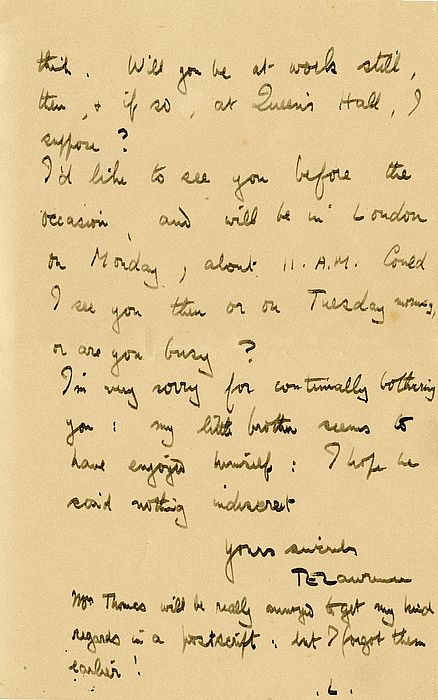 think. Will you be at work still,
then, & if so, at Queen's Hall, I
suppose?
I'd like to see you before the
occasion, and will be in London
on Monday, about 11. A.M. Could
I see you then or on Tuesday morning,
or are you busy?
I'm very sorry for continually bothering
you: my little brother seems to
have enjoyed himself: I hope he
said nothing indiscreet
Yours sincerely
TE Lawrence
Mrs Thomas will be really annoyed to get my kind
regards in a postscript: but I forgot them
earlier!
L.